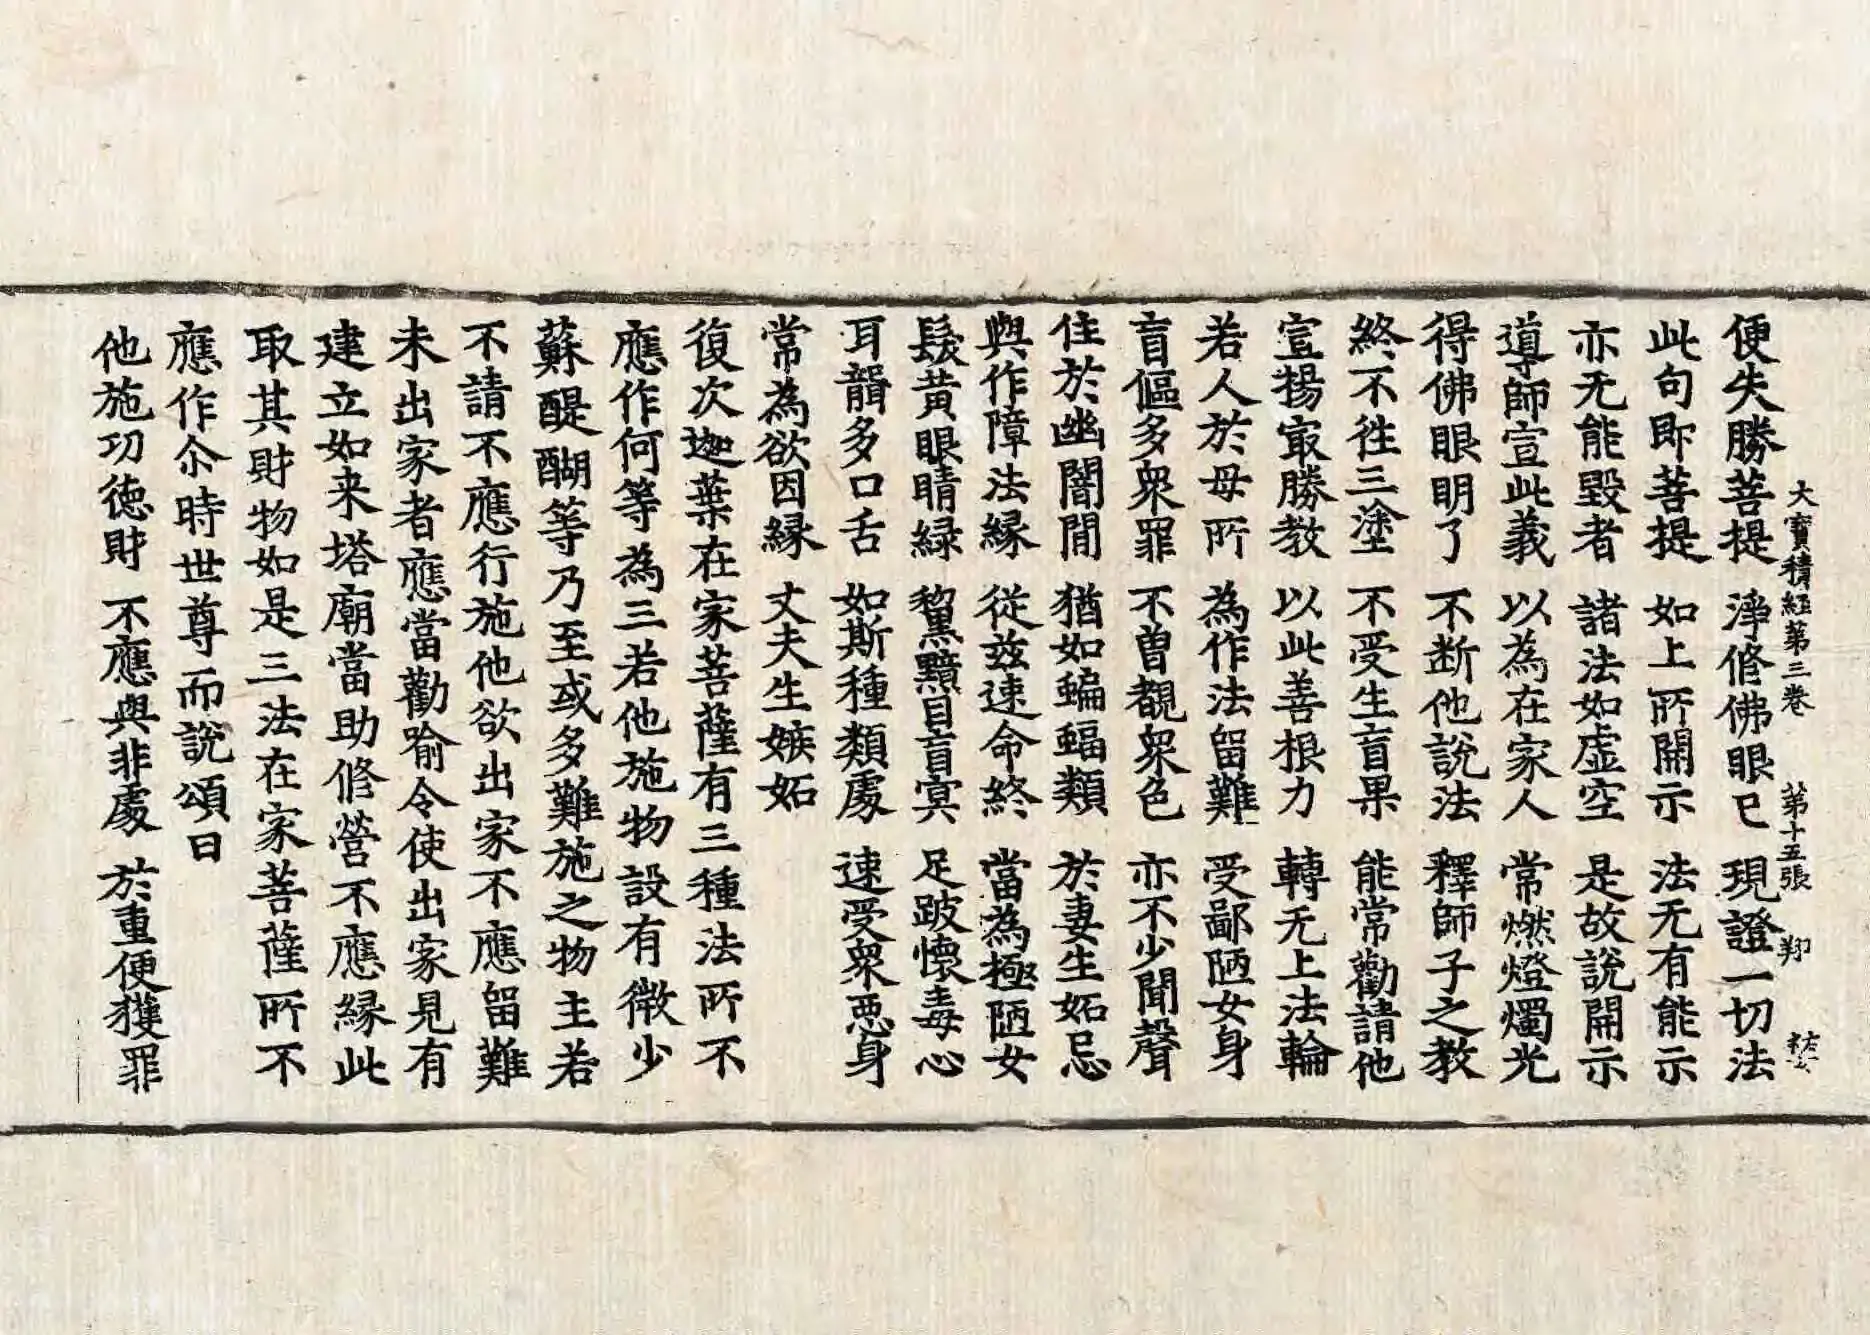 大寶積經第三卷　第十五張　翔
便失勝菩提　淨脩佛眼已　現證一切法
此句即菩提　如上所開示　法无有能示
亦无能毀者　諸法如虛空　是故說開示
導師宣此義　以為在家人　常燃燈燭光
得佛眼明了　不断他說法　釋師子之教
終不徃三塗　不受生盲果　能常勸請他
宣揚㝡勝教　以此善根力　轉无上法輪
若人於母所　為作法留難　受鄙陋女身
盲傴多衆罪　不曽覩衆色　亦不少聞聲
住於幽闇間　猶如蝙蝠類　於妻生妬忌
與作障法緣　從兹速命終　當為極陋女
髮黄眼睛緑　黧黮目盲㝠　足跛懷毒心
耳聾多口舌　如斯種類處　速受衆惡身
常為欲因緣　丈夫生嫉妬
復次迦葉在家菩薩有三種法所不
應作何等為三若他施物設有微少
蘇醍醐等乃至或多難施之物主若
不請不應行施他欲出家不應留難
未出家者應當勸喻令使出家見有
建立如来塔廟當助脩營不應緣此
取其財物如是三法在家菩薩所不
應作尒時世尊而說頌曰
他施功德財　不應與非處　於重便獲罪